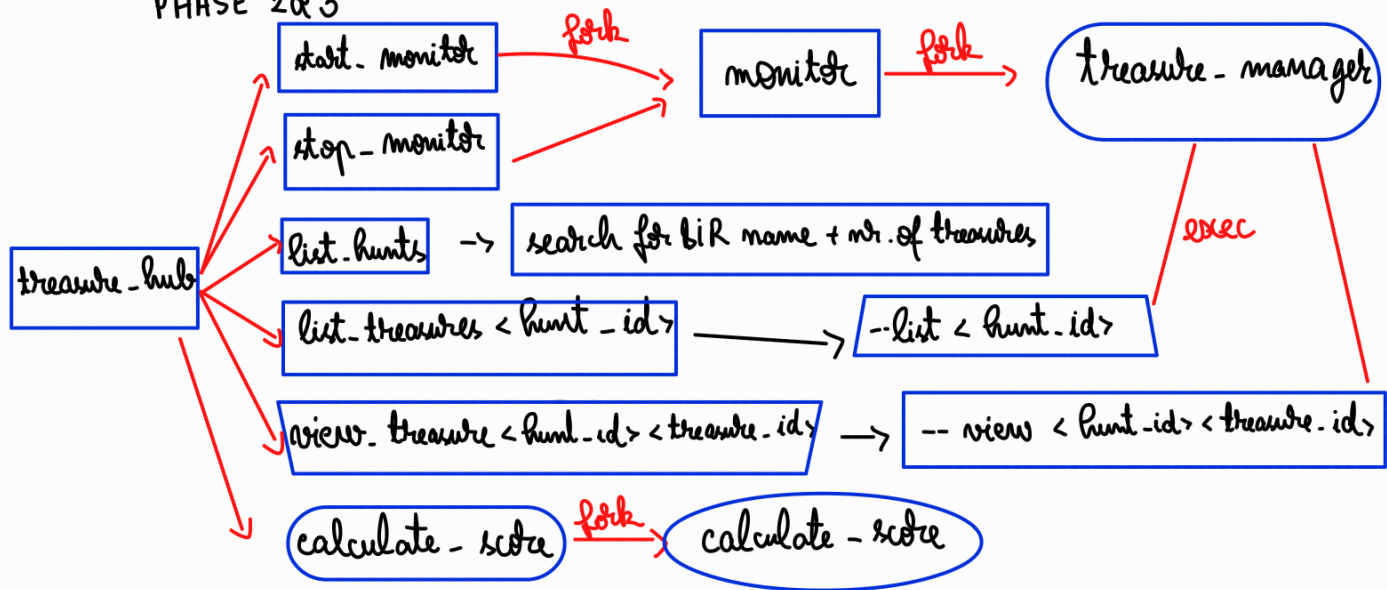 PHASE 2&3
start_monitor
fork
monitor
fork
treasure_manager
stop_monitor
list_hunts
search for DIR name + nr. of treasures
exec
treasure_hub
list_treasures < hunt_id>
--list < hunt_id>
view_treasure <hunt_id> <treasure_id>
-- view < hunt_id> <treasure_id>
calculate_score
fork
calculate_score